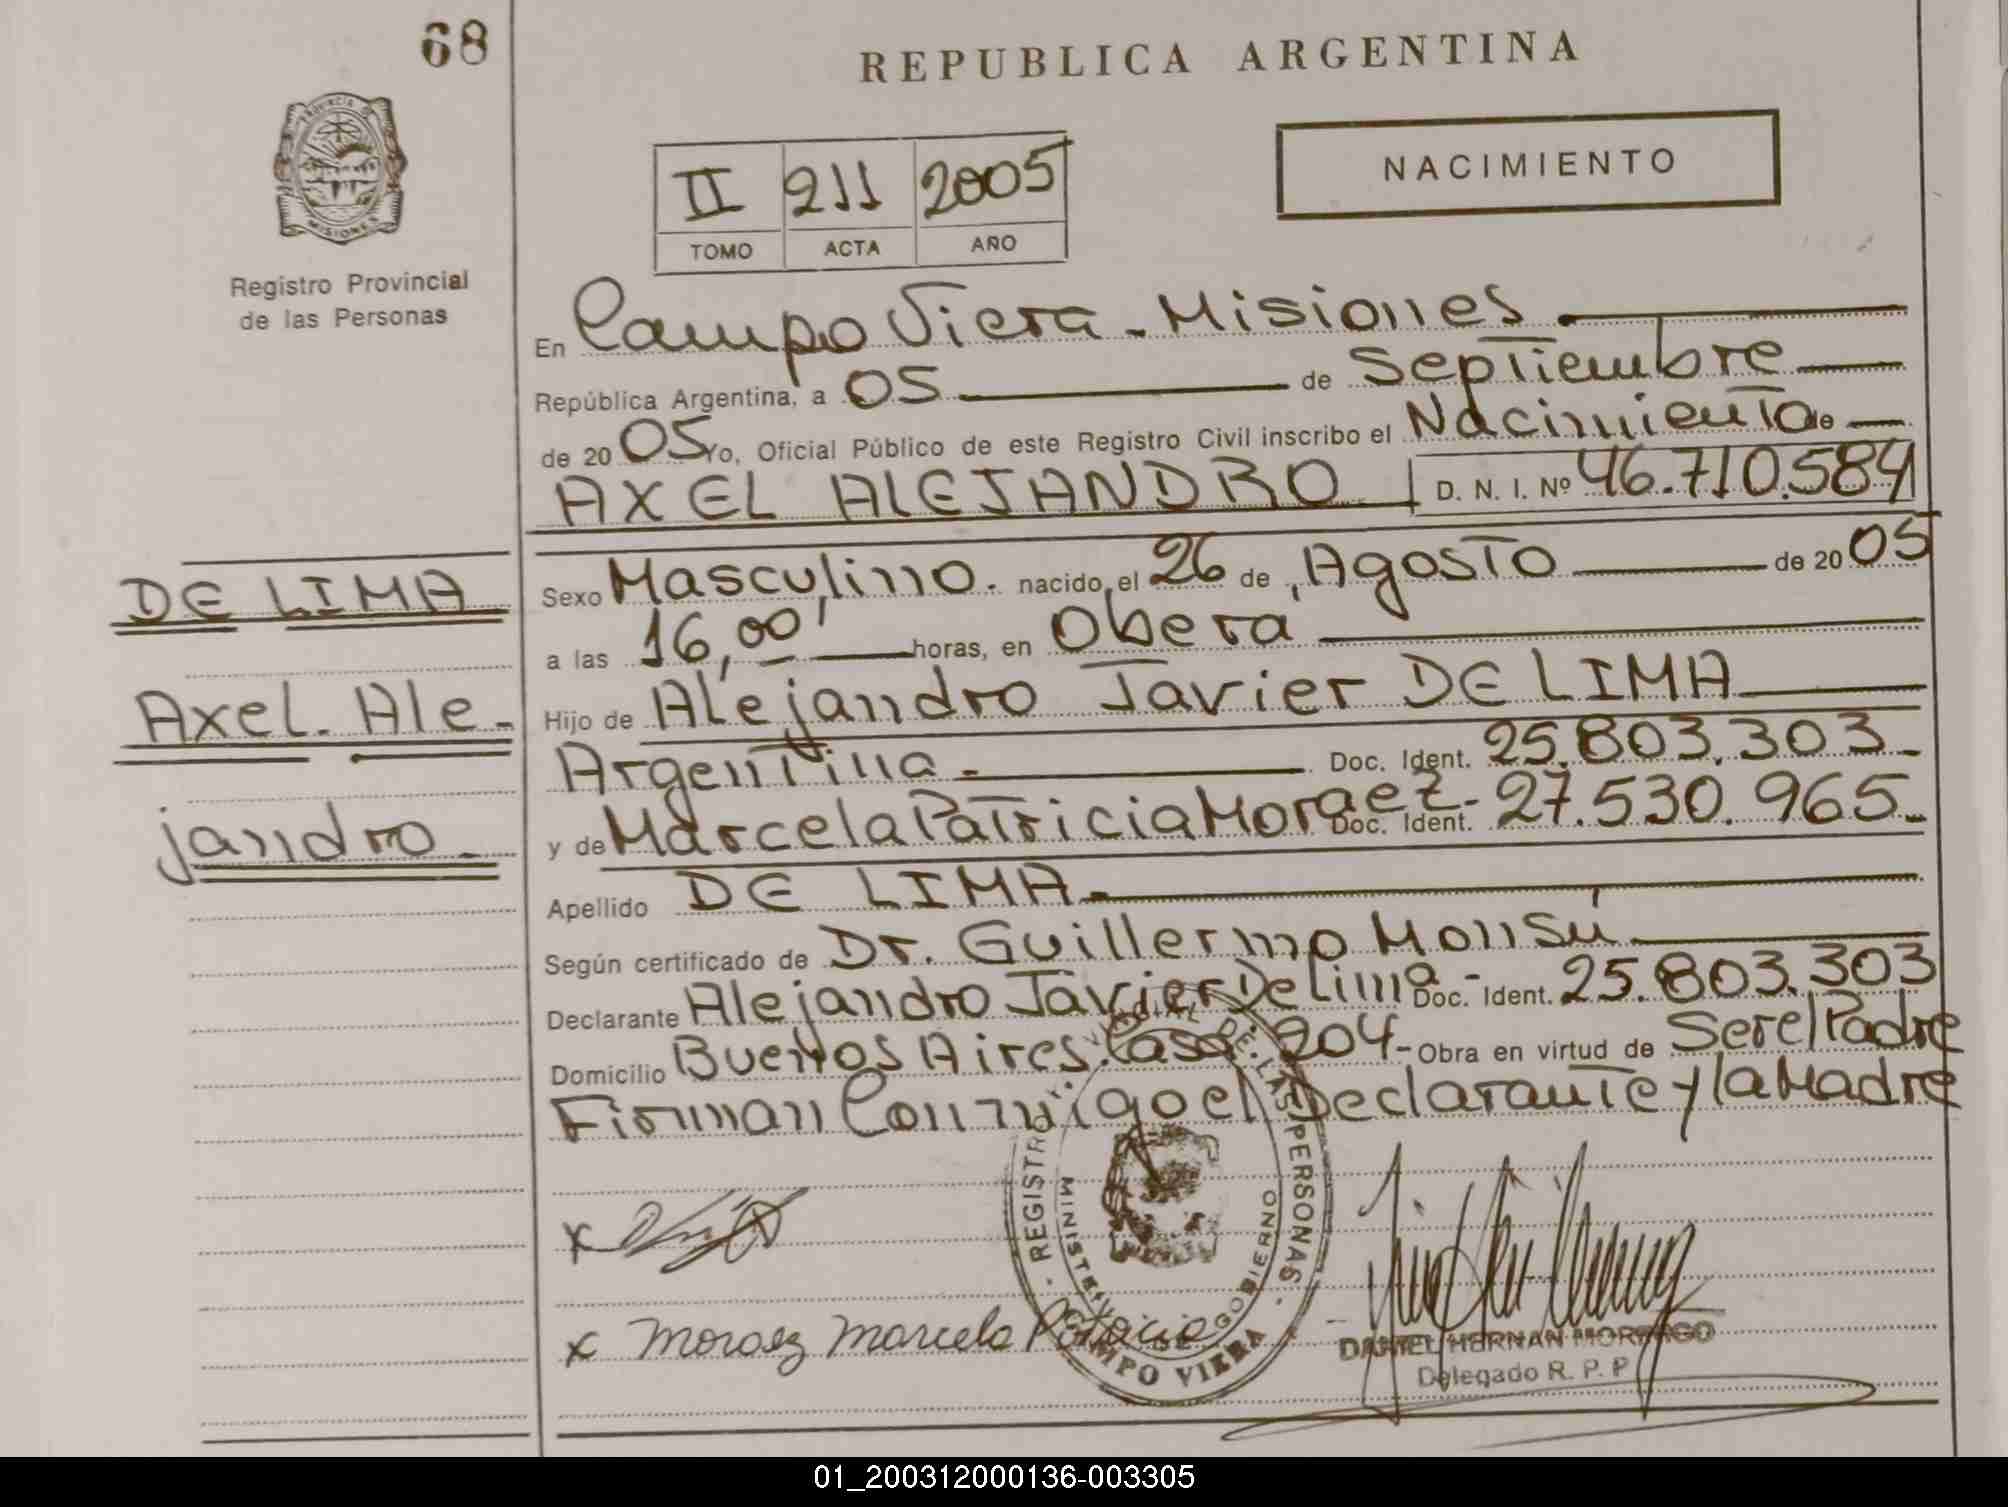 68
REPUBLICA ARGENTINA
PROVINCIA DE
MISIONES
Registro Provincial
de las Personas
II 211 2005
TOMO ACTA AÑO
NACIMIENTO
En Campo Viera - Misiones
República Argentina, a 05 de Septiembre
de 20 05 Yo, Oficial Público de este Registro Civil inscribo el Nacimiento de
AXEL ALEJANDRO D. N. I. Nº 46.710.584
DE LIMA
Axel Ale-
jandro
Sexo Masculino. nacido el 26 de Agosto de 20 05
a las 16,00 horas, en Obera
Hijo de Alejandro Javier DE LIMA
Argentina - Doc. Ident. 25.803.303
y de Marcela Patricia Moraez - Doc. Ident. 27.530.965
Apellido DE LIMA
Según certificado de Dr. Guillermo Monsú
Declarante Alejandro Javier De Lima - Doc. Ident. 25.803.303
Domicilio Buenos Aires Casa: 204 - Obra en virtud de Ser el Padre
Firman Conmigo el Declarante y la Madre
REGISTRO DE LAS PERSONAS
MINISTERIO GOBIERNO
CAMPO VIERA
x
x Moraez Marcela Patricia
DANIEL HERNAN
Delegado R. P. P
01_200312000136-003305